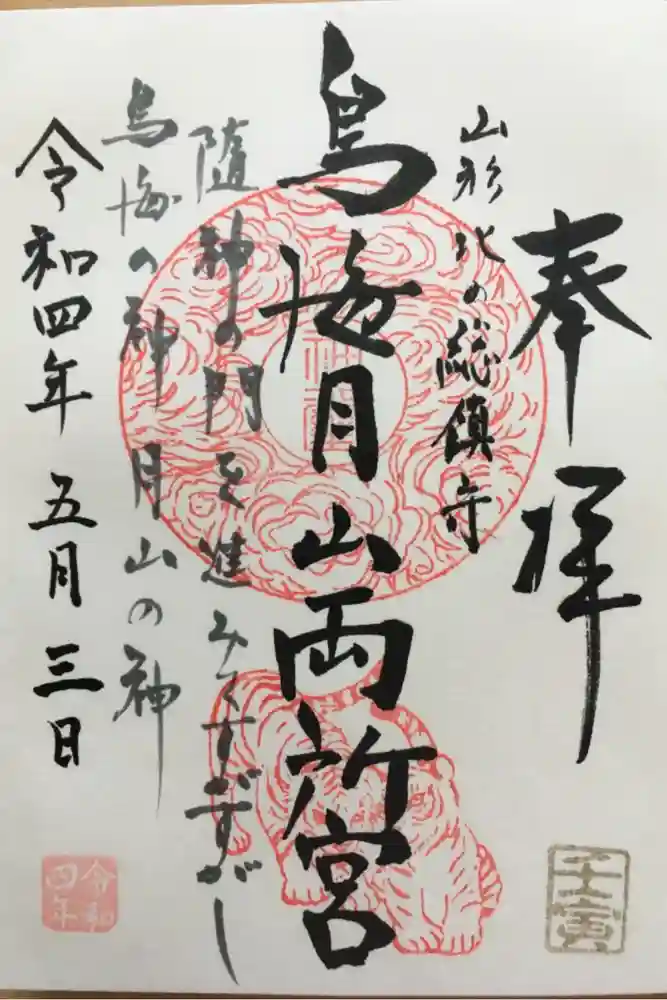 奉拝
山形北の総鎮守
鳥海月山両所宮
随神の門を進みてすがすがし
鳥海の神月山の神
令和四年五月三日
壬寅
令和
四年